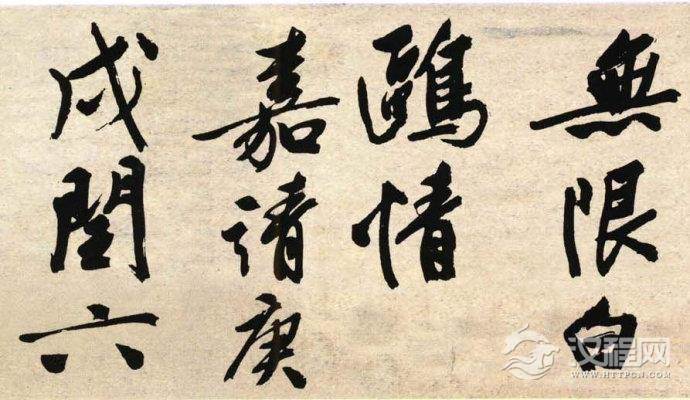 無限白
鷗情
嘉靖庚
戌閏六
汉程网
WWW.HTTPCN.COM